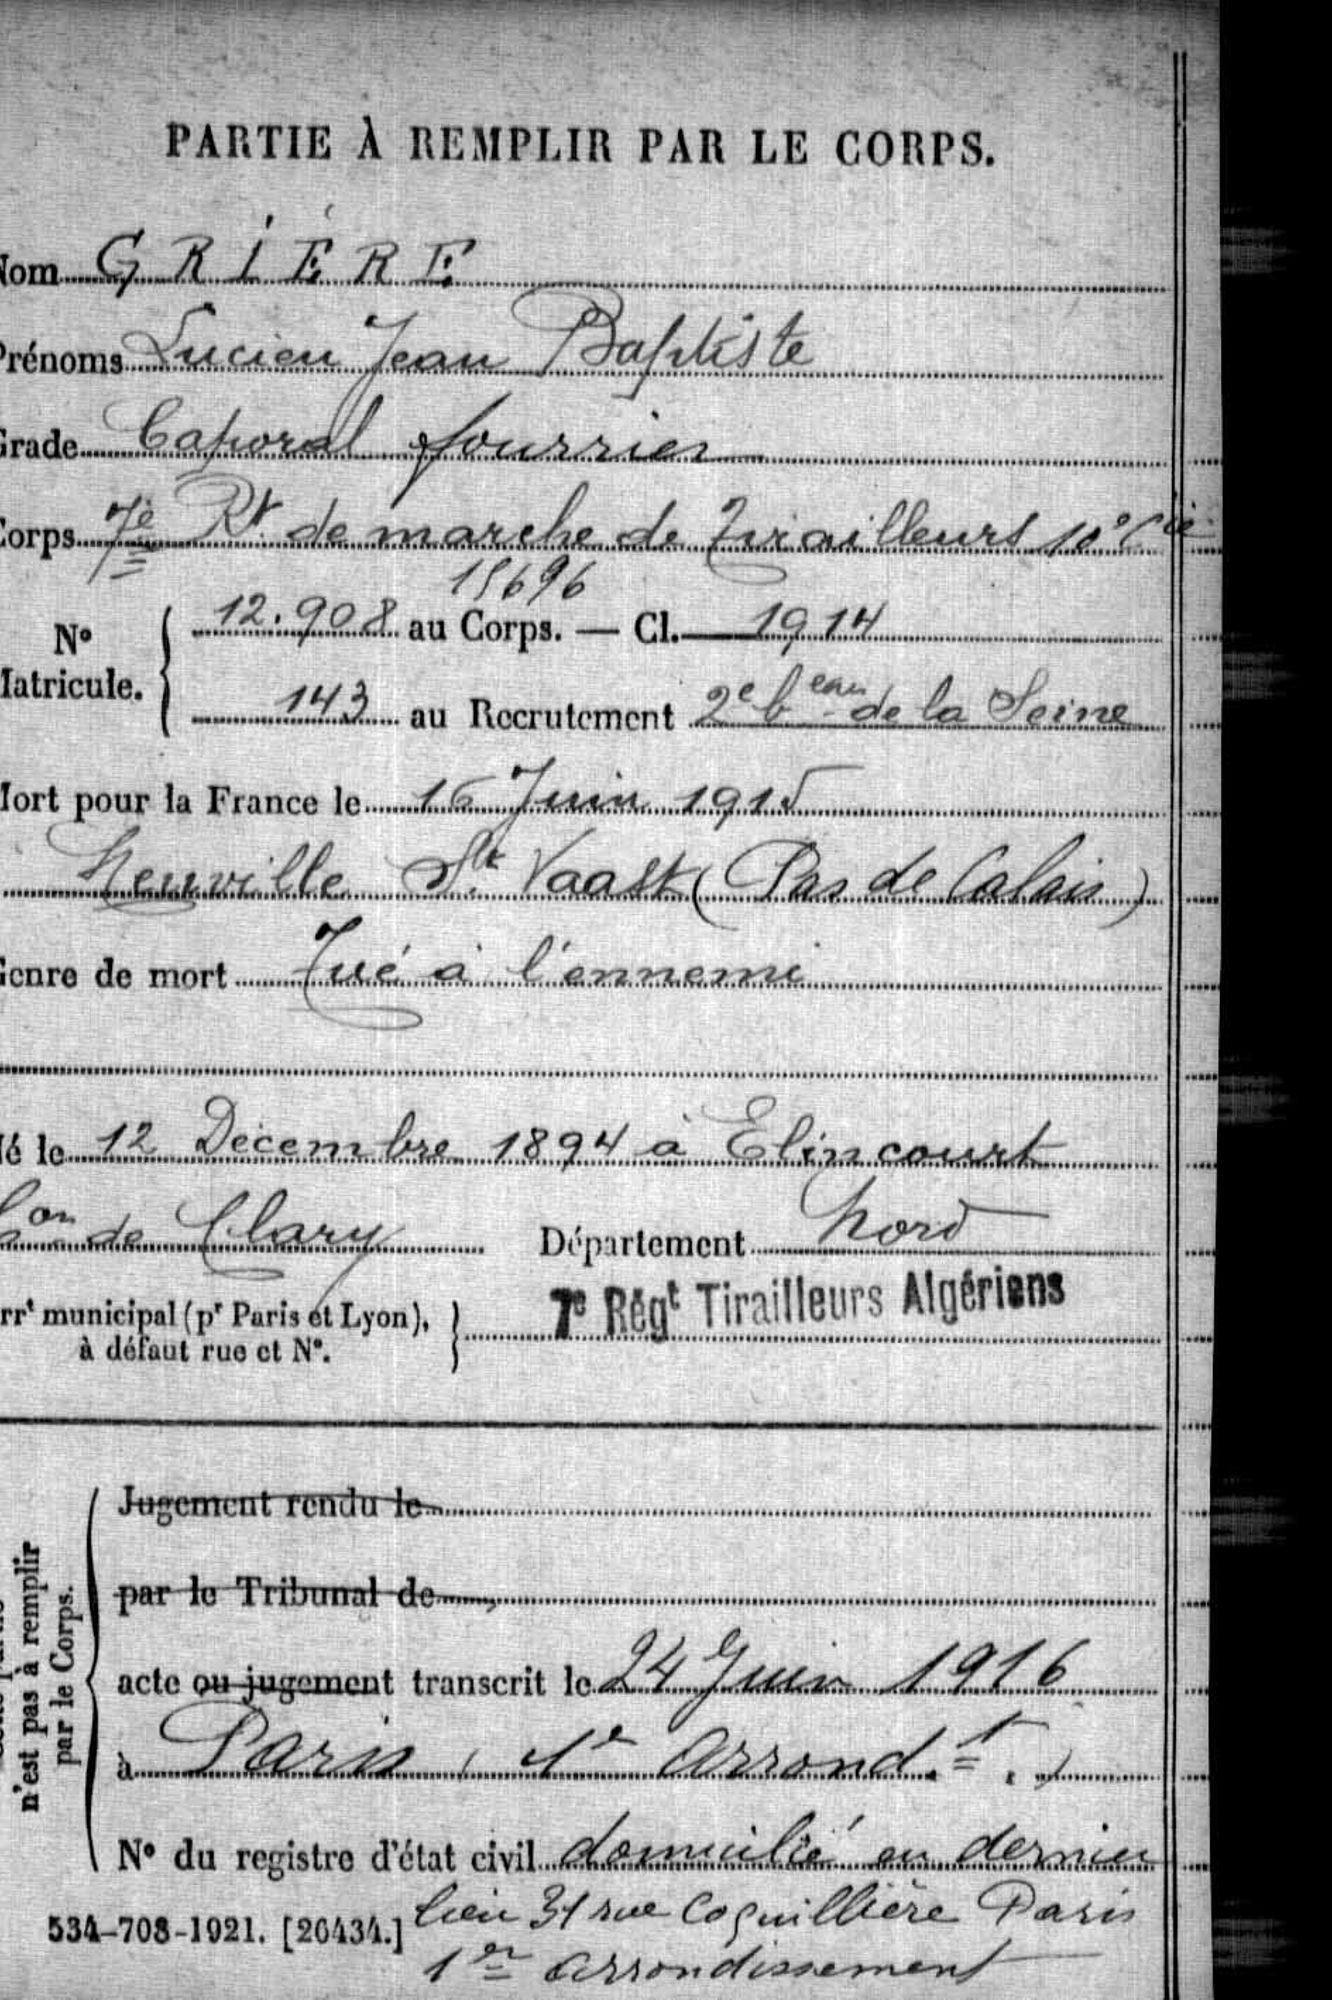 PARTIE À REMPLIR PAR LE CORPS.
Nom GRIÈRE
Prénoms Lucien Jean Baptiste
Grade Caporal fourrier
Corps 7e Rt de marche de Tirailleurs 10e Cie
15696
N° Matricule. 12.908 au Corps. — Cl. 1914
143 au Recrutement 2e beau de la Seine
Mort pour la France le 16 Juin 1915
Neuville St Vaast (Pas de Calais)
Genre de mort Tué à l'ennemi
Né le 12 Décembre 1894 à Elincourt
Con de Clary Département Nord
Arrt municipal (pr Paris et Lyon), à défaut rue et N°. 7e Régt Tirailleurs Algériens
n'est pas à remplir
par le Corps.
Jugement rendu le
par le Tribunal de
acte ou jugement transcrit le 24 Juin 1916
à Paris, 1e Arrondt.
N° du registre d'état civil domicilié en dernier
lieu 31 rue Coquillière Paris
534-708-1921. [26434.]
1er Arrondissement